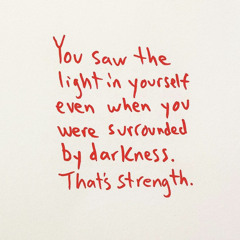 You saw the
light in yourself
even when you
were surrounded
by darkness.
That's strength.